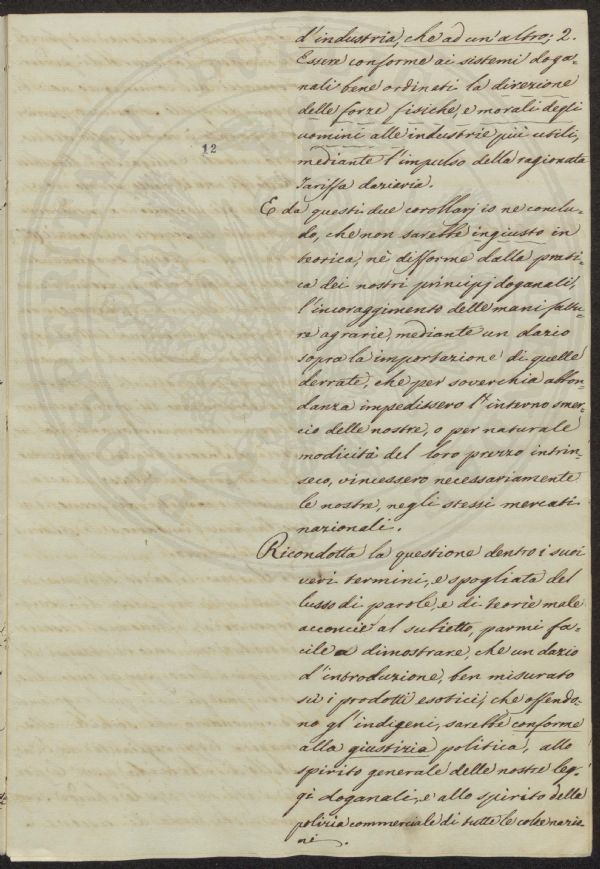 d'industria, che ad un'altro; 2.
Essere conforme ai sistemi doga-
nali bene ordinati la direzione
delle forze fisiche, e morali degli
uomini alle industrie più utili,
mediante l'impulso della ragionata
Tariffa daziaria.
12
E da questi due corollarj io ne conclu-
do, che non sarebbe ingiusto in
teorica, nè difforme dalla prati-
ca dei nostri principj doganali,
l'incoraggimento delle manifattu-
re agrarie, mediante un dazio
sopra la importazione di quelle
derrate, che per soverchia abbon-
danza impedissero l'interno smer-
cio delle nostre, o per naturale
modicità del loro prezzo intrin-
seco, vincessero necessariamente
le nostre, negli stessi mercati
nazionali.
Ricondotta la questione dentro i suoi
veri termini, e spogliata del
lusso di parole, e di teorie male
acconcie al subietto, parmi fa-
cile a dimostrare, che un dazio
d'introduzione, ben misurato
su i prodotti esotici, che offendo-
no gl'indigeni, sarebbe conforme
alla giustizia politica, allo
spirito generale delle nostre leg-
gi doganali, e allo spirito della
polizia commerciale di tutte le colte nazio-
ni.